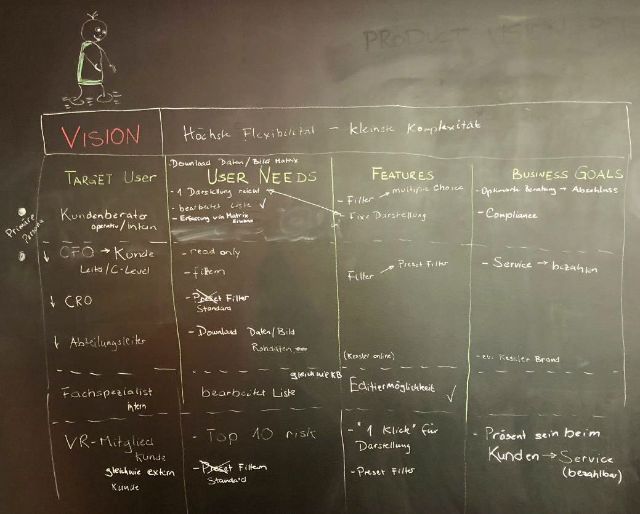 PRODUCT
VISION
Höchste Flexibilität – kleinste Komplexität
TARGET USER
Download Daten/Bild Matrix
USER NEEDS
FEATURES
BUSINESS GOALS
Primäre Persona
Kundenberater
operativ/intern
- 1 Darstellung reicht
- bearbeitet Liste ✓
- Erfassung von Matrix
- Filter → multiple Choice
- Fixe Darstellung
- Optimierte Beratung → Abschluss
- Compliance
↓ CFO → Kunde
Leits/C-Level
- read only
- filtern
- Preset Filter
Standard
Filter → Preset Filter
- Service → bezahlen
↓ CRO
↓ Abteilungsleiter
- Download Daten/Bild
Rohdaten
(Kessler online)
- ev. Kessler Brand
Fachspezialist
intern
gleich wie KB
bearbeitet Liste
Editiermöglichkeit ✓
VR-Mitglied
Kunde
gleich wie extern
Kunde
- Top 10 risk
- Preset Filtern
Standard
- "1 Klick" für
Darstellung
- Preset Filter
- Präsent sein beim
Kunden → Service
(bezahlbar)